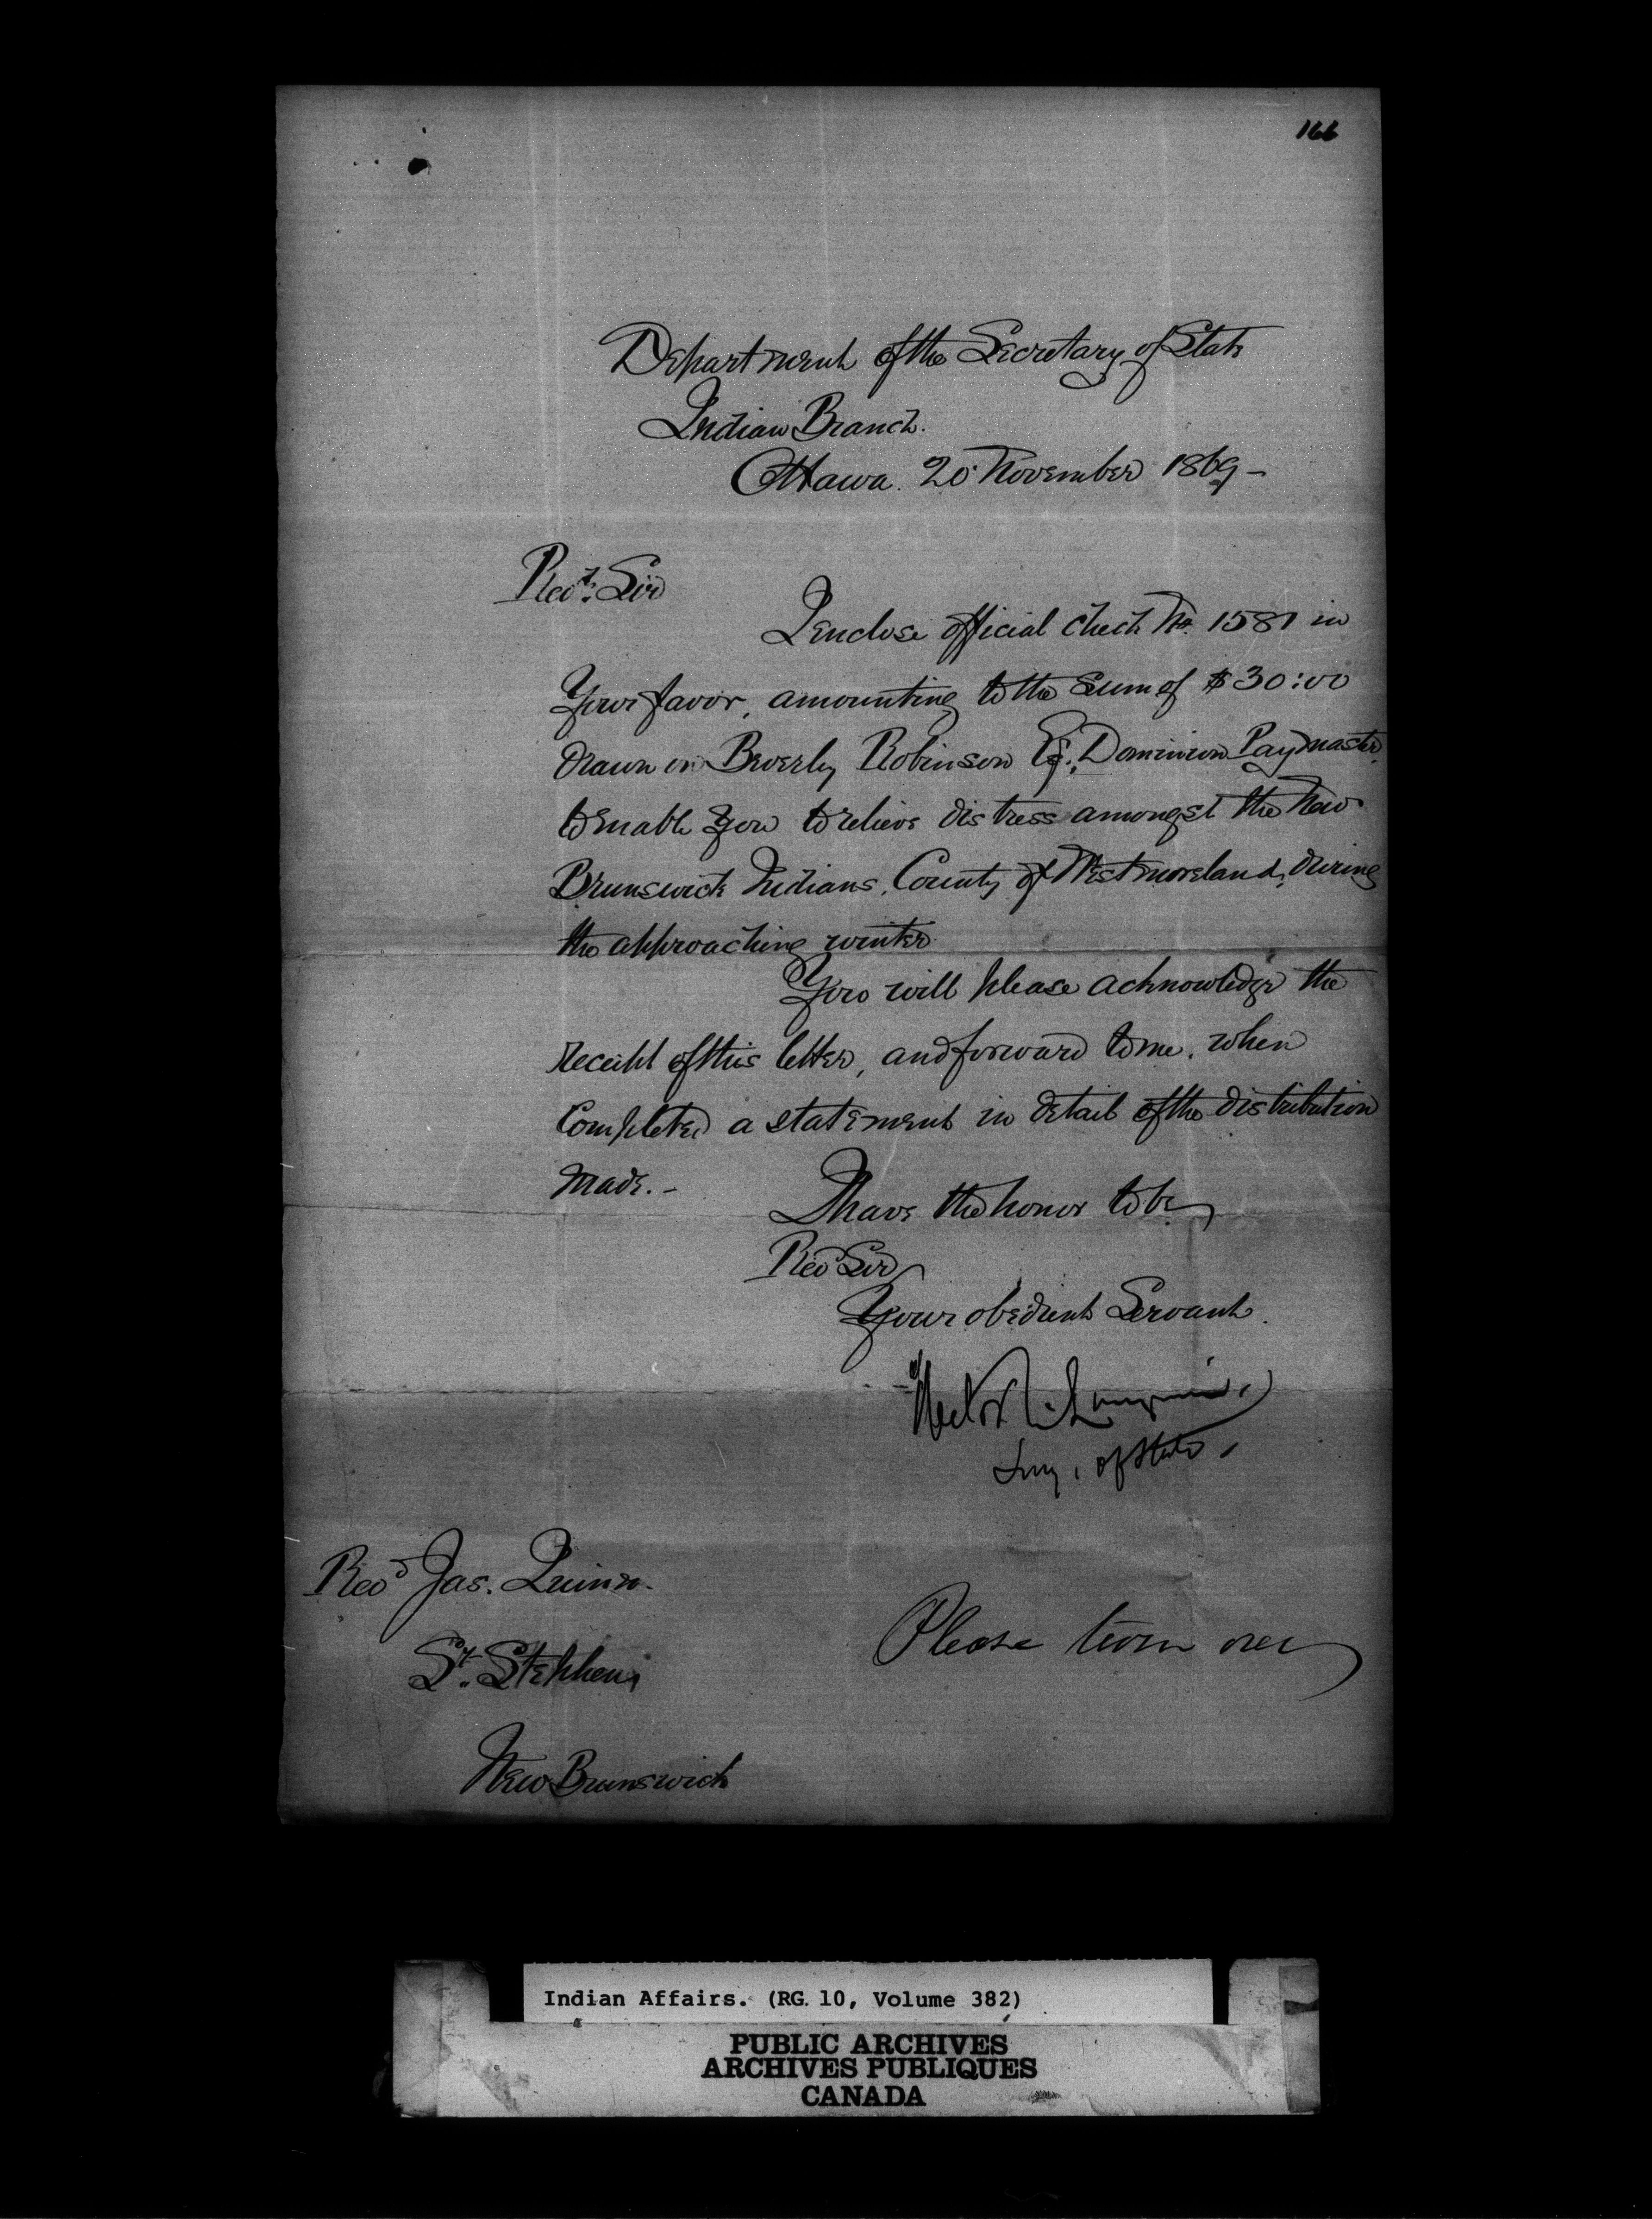 166
Department of the Secretary of State
Indian Branch.
Ottawa. 20 November 1869 -
Revd. Sir
I enclose official Check No. 1581 in
Your favor, amounting to the Sum of $30:00
drawn on Beverly Robinson Esq., Dominion Paymaster,
to enable you to relieve distress amongst the New
Brunswick Indians, County of Westmoreland, during
the approaching winter.
You will please acknowledge the
receipt of this letter, and forward to me, when
Completed a statement in detail of the distribution
made. -
I have the honor to be
Revd Sir
Your obedient Servant.
Hector L. Langevin,
Secy. of State,
Revd Jas. Quinn.
St. Stephens
New Brunswick
Please turn over
Indian Affairs. (RG. 10, Volume 382)
PUBLIC ARCHIVES
ARCHIVES PUBLIQUES
CANADA